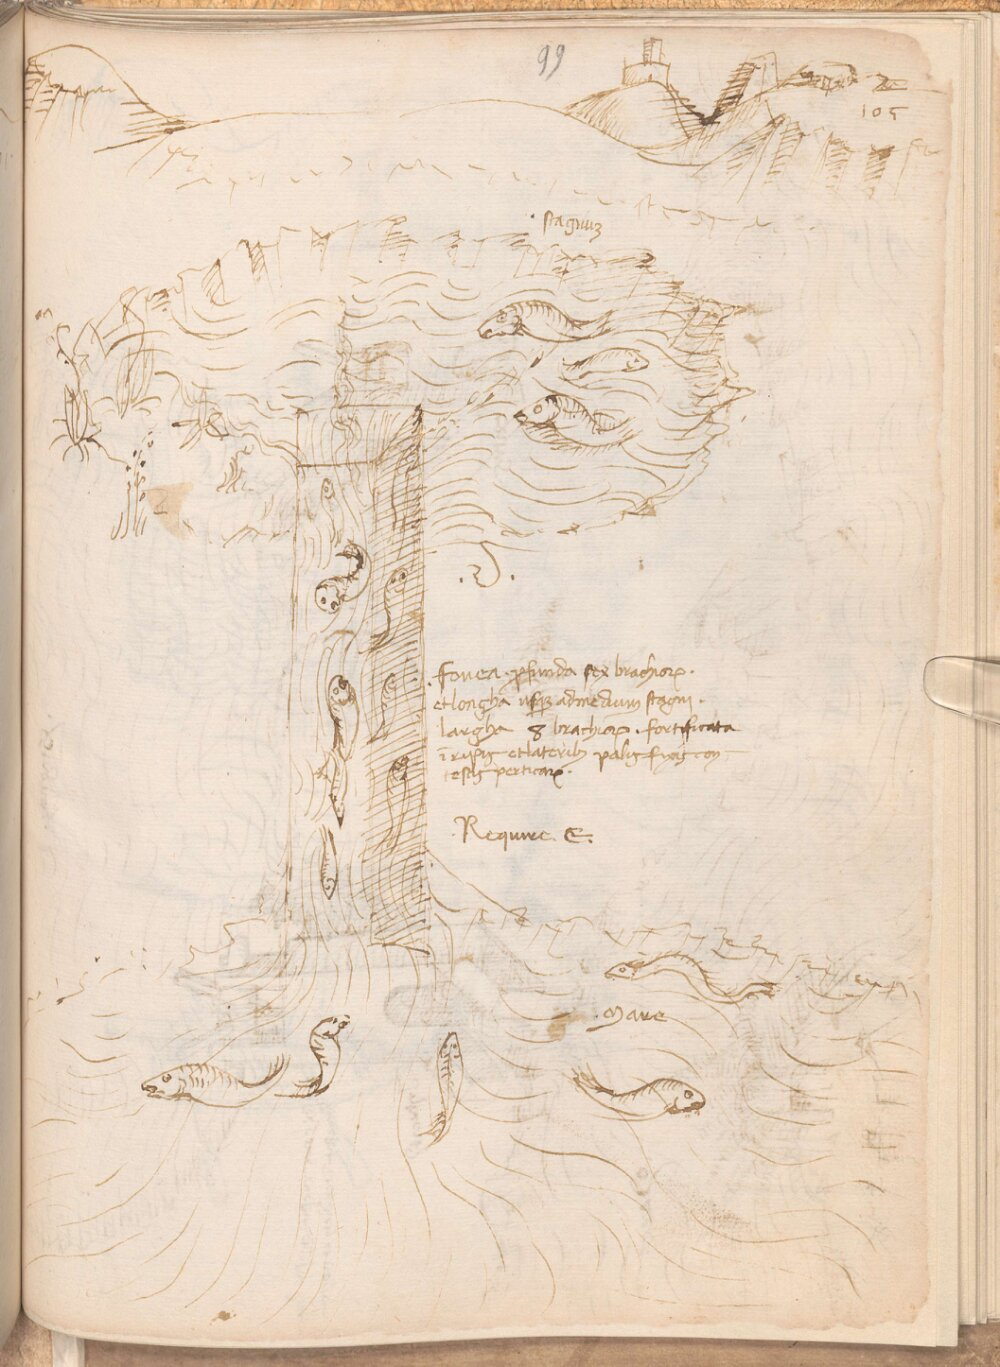 99
105
stagnuz
.D.
fouea . pfunda sex brachioꝝ .
et longha usqꝫ ad medium stagni .
largha 8 brachioꝝ . fortificata
ī ripis et lateribꝫ palis fixis con
testis perticaꝝ .
Require E.
Mare